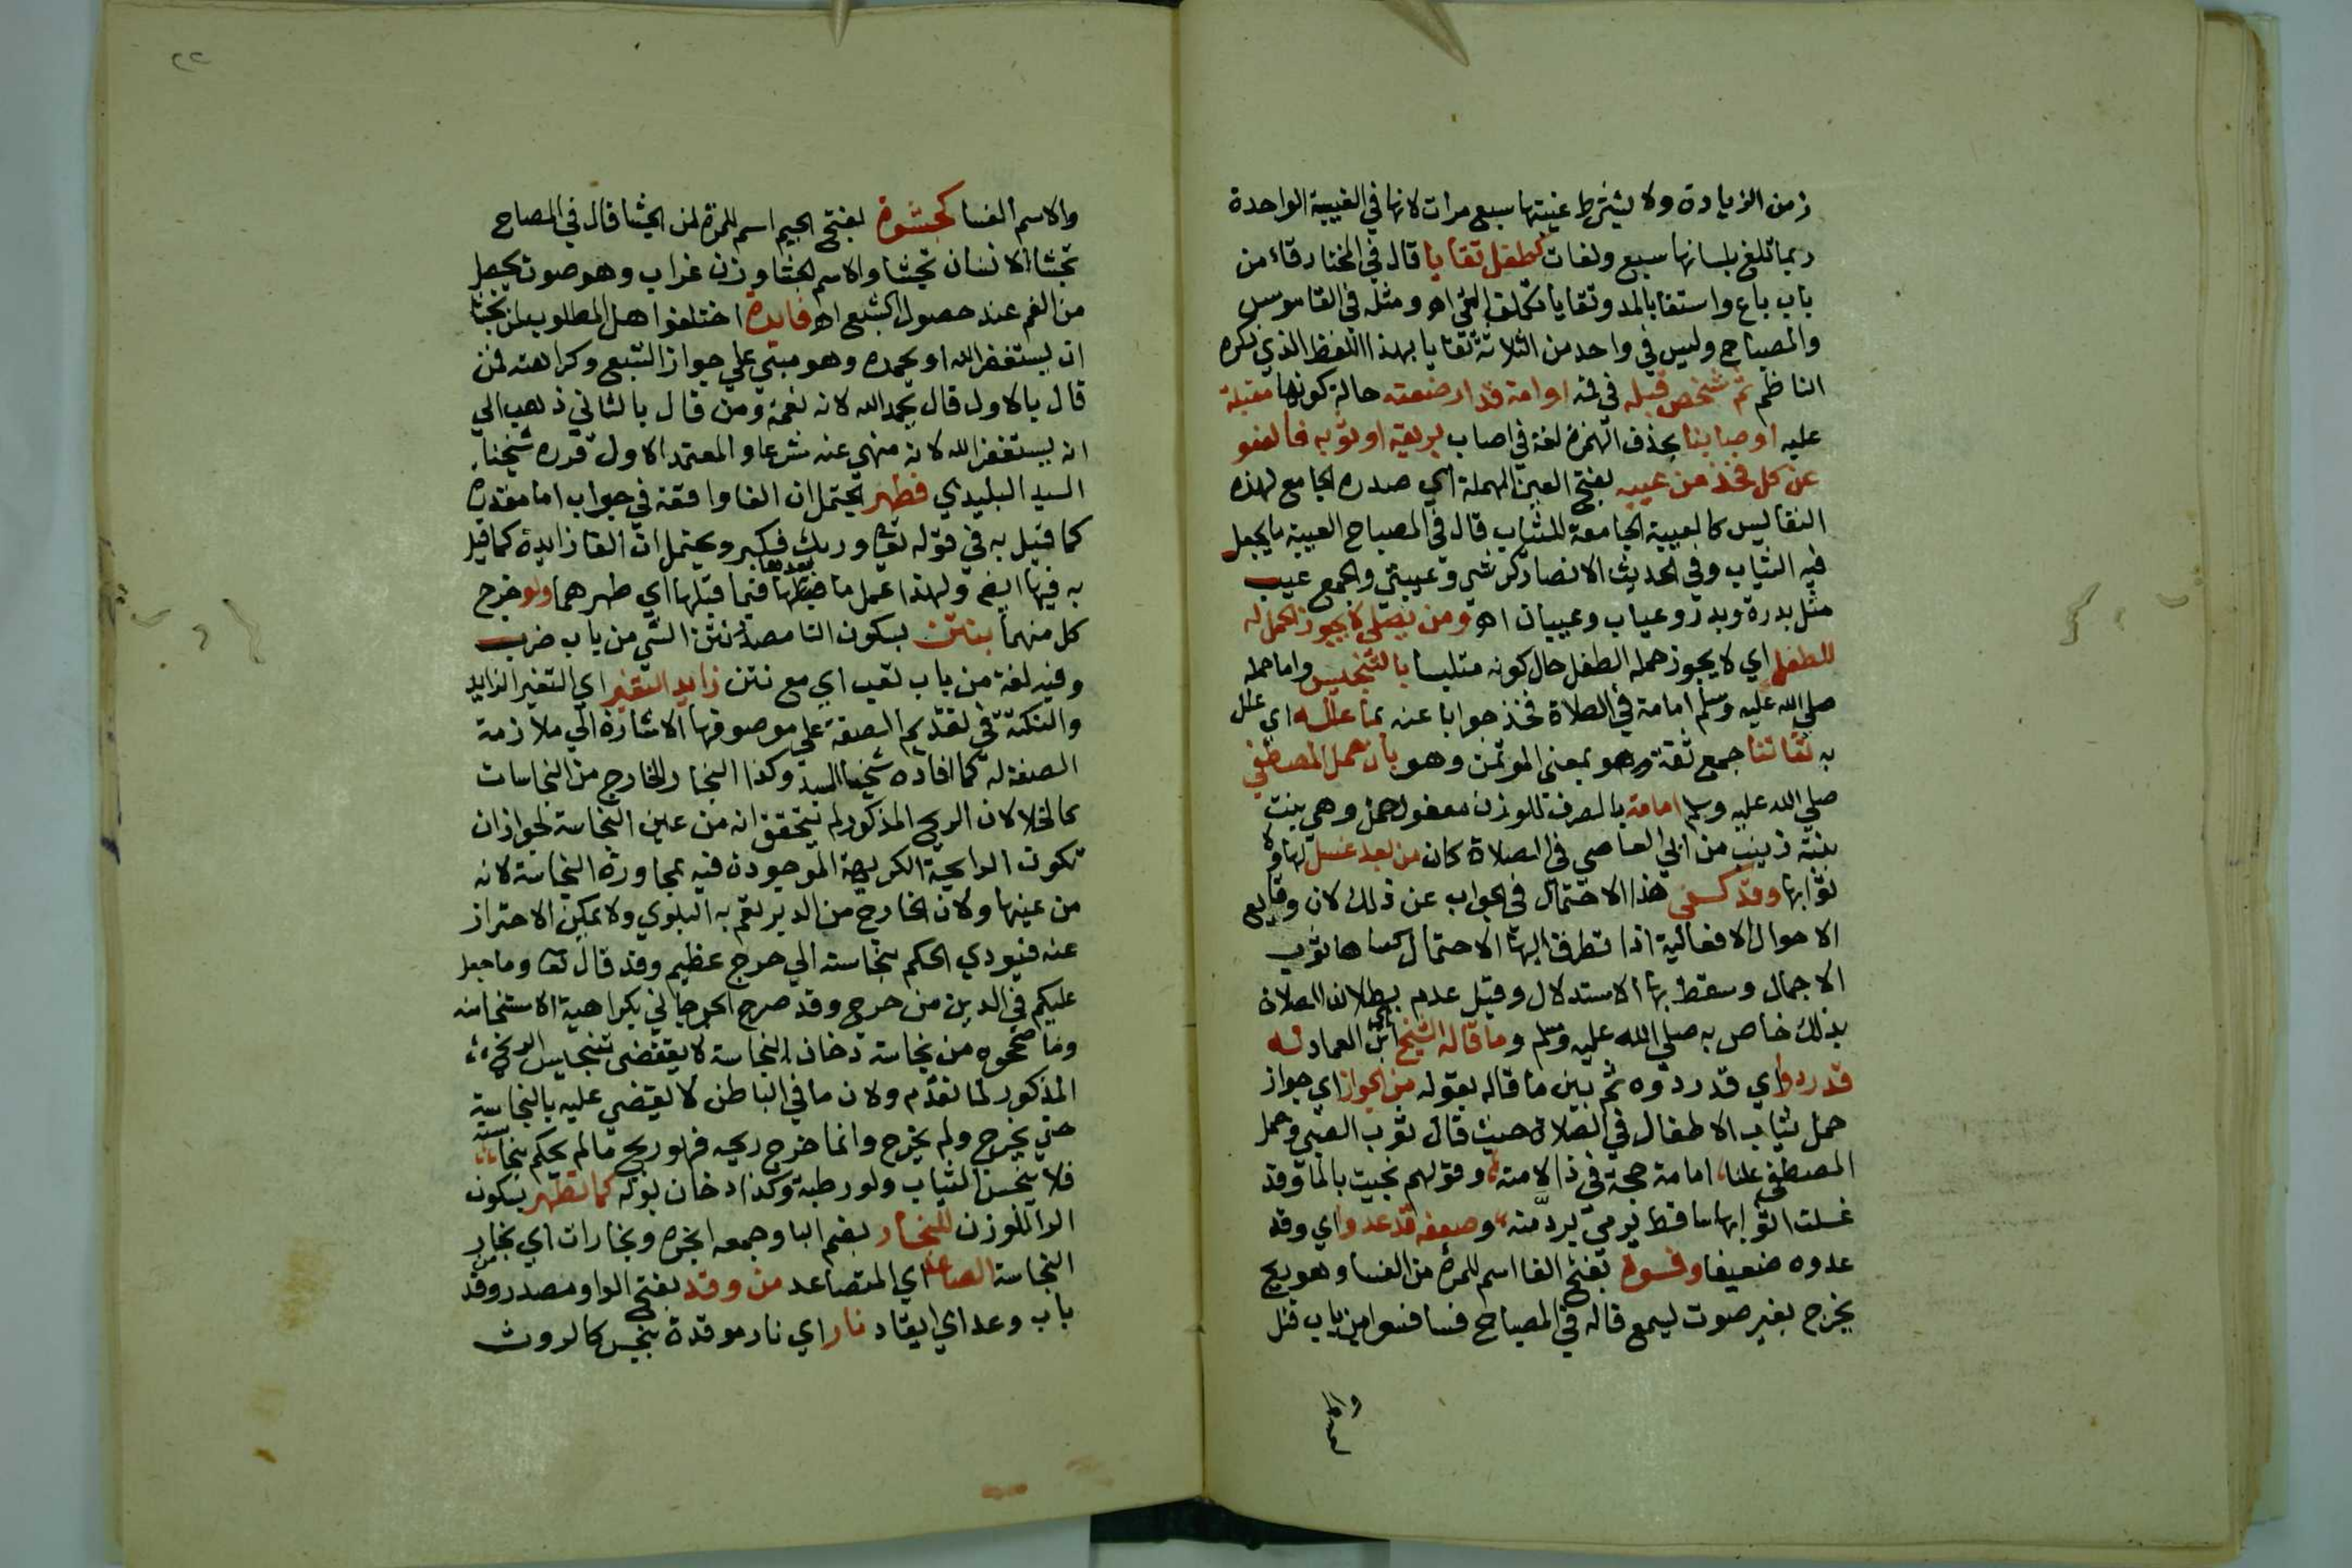 زمن الزيادة ولا يشترط غيبتها سبع مرات لانها في الغيبة الواحدة
ربما تلغ بلسانها سبع ولغات كطفل تقايا قال في المختار قاء من
باب باع واستقا بالمد وتقايا تكلف القي اه ومثله في القاموس
والمصباح وليس في واحد من الثلاثة تقايا بهذا اللفظ الذي ذكره
الناظم ثم شخص قبله في فمه او امة قد ارضعته حالة كونها مقبلة
عليه او صابنا بحذف الهمزة لغة في اصاب بريقه او ثوبه فالعفو
عن كل فخذ من عيبه بفتح العين المهملة اي صدره الجامع لهذه
النفاليس كالعيبة الجامعة للثياب قال في المصباح العيبة ما يجعل
فيه الثياب وفي الحديث الانصار كرشي وعيبتي والجمع عيب
مثل بدرة وبدر وعياب وعيبات اه ومن يصلي لا يجوز الحمل له
للطفل اي لا يجوز حمله الطفل حال كونه متلبسا بالتنجيس واما حمله
صلي الله عليه وسلم امامة في الصلاة فخذ جوابا عنه بما علله اي علل
به ثقاتنا جمع ثقة وهو بمعني الموتمن وهو بان حمل المصطفي
صلي الله عليه وسلم امامة بالصرف للوزن مفعول حمل وهي بنت
بنته زينب من ابي العاصي في الصلاة كان من بعد غسل لها و
ثوابها وقد كسفي هذا الاحتمال في الجواب عن ذلك لان وقايع
الاحوال الافعالية اذا تطرق اليها الاحتمال كساها ثوب
الاجمال وسقط بها الاستدلال وقيل عدم بطلان الصلاة
بذلك خاص به صلي الله عليه وسلم وما قاله الشيخ ابن العماد له
قد ردوا اي قد ردوه ثم بين ما قاله بقوله من الجواز اي جواز
حمل ثياب الاطفال في الصلاة حيث قال ثوب الصبي وحمل
المصطفي علنا، امامة حجة في ذا لامته، وقولهم نجيت بالما وقد
غسلت اثوابها ساقط يرمي يرد منه، وضعفه قد عدوا اي وقد
عدوه ضعيفا وفسوة بفتح الفا اسم للمرة من الفسا وهو ريح
يخرج بغير صوت يسمع قاله في المصباح فسا فسوا من باب قتل
والاسم
والاسم الفسا كجشوة بفتح الجيم اسم للمرة من الجشا قال في المصباح
تجشا الانسان تجشا والاسم الجشا وزن غراب وهو صوت يحصل
من الفم عند حصول الشبع اه فايدة اختلفوا هل المطلوب لمن تجشا
ان يستغفر الله او يحمده وهو مبني علي جواز الشبع وكراهته فمن
قال بالاول قال يحمد الله لانه نعمة ومن قال بالثاني ذهب الي
انه يستغفر الله لانه منهي عنه شرعا والمعتمد الاول قرره شيخنا
السيد البليدي فطهر يحتمل ان الفا واقعة في جواب اما مقدرة
كما قيل به في قوله تعالي وربك فكبر ويحتمل ان الفا زايدة كما قيل
به فيها ايضم ولهذا عمل ما بعدها فيما قبلها اي طهرهما ولو خرج
كل منهما بنتن بسكون التا مصدر نتن الشي من باب ضرب
وفيه لغة من باب تعب اي مع نتن زايد التغير اي التغير الزايد
والنكتة في تقديم الصفة علي موصوفها الاشارة الي ملازمة
الصفة له كما افاده شيخنا السيد وكذا البخار الخارج من النجاسات
كالخلا لان الريح المذكور لم يتحقق انه من عين النجاسة لجواز ان
تكون الرايحة الكريهة الموجودة فيه بمجاورة النجاسة لانه
من عينها ولان الخارج من الدبر تعم به البلوي ولا يمكن الاحتراز
عنه فيودي الحكم بنجاسته الي حرج عظيم وقد قال تعا وما جعل
عليكم في الدين من حرج وقد صرح الجرجاني بكراهية الاستنجا منه
وما صححوه من نجاسة دخان النجاسة لا يقتضي تنجيس الريح
المذكور لما تقدم ولان ما في الباطن لا يقضي عليه بالنجاسة
حتي يخرج ولم يخرج وانما خرج ريحه فهو ريح ما لم يحكم بنجاسته
فلا ينجس الثياب ولو رطبة وكذا دخان بوله كما تطهر بسكون
الرا للوزن للبخار بضم البا وجمعه ابخرة وبخارات اي بخار
النجاسة الصاعد اي المتصاعد من وقد بفتح الواو مصدر وقد من
باب وعد اي ايقاد نار اي نار موقدة بنجس كالروث
٢٢